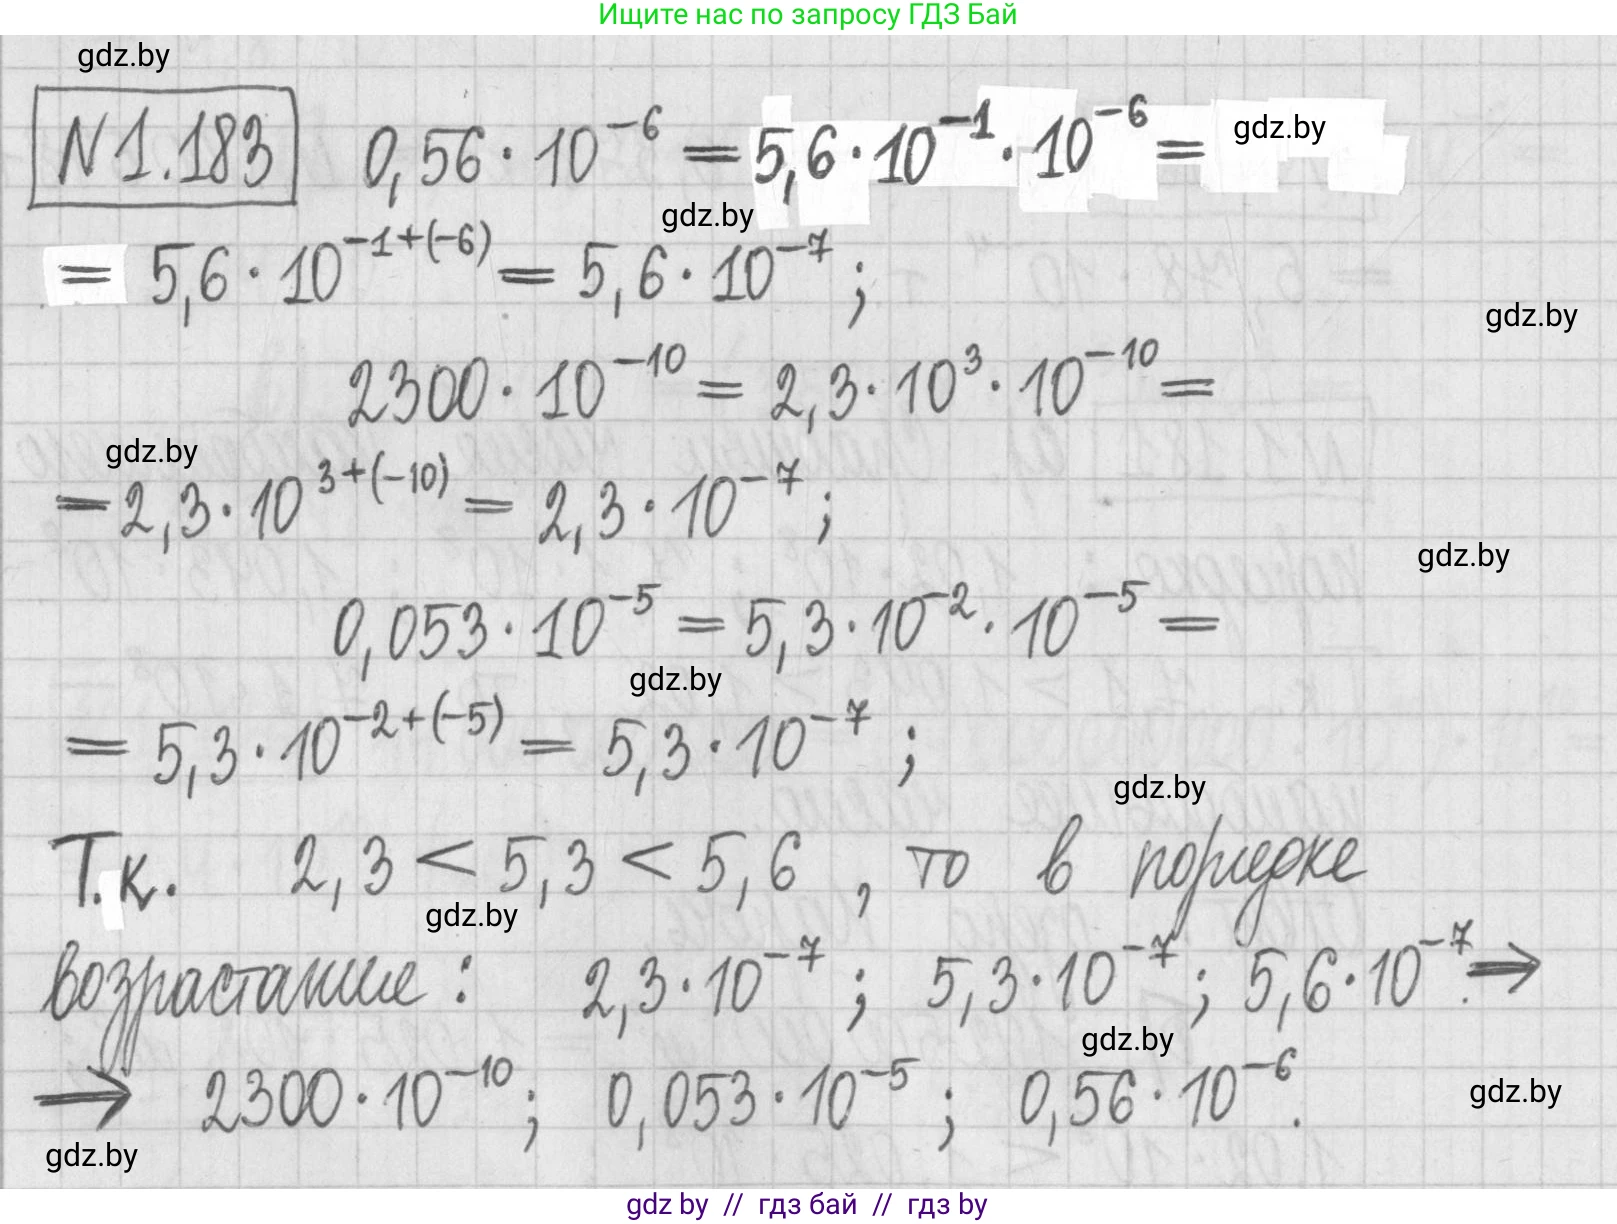 Ищите нас по запросу ГДЗ Бай
gdz.by
N1.183 0,56 · 10⁻⁶ = 5,6 · 10⁻¹ · 10⁻⁶ = gdz.by
gdz.by
= 5,6 · 10⁻¹⁺⁽⁻⁶⁾ = 5,6 · 10⁻⁷ ;
gdz.by
2300 · 10⁻¹⁰ = 2,3 · 10³ · 10⁻¹⁰ =
gdz.by
= 2,3 · 10³⁺⁽⁻¹⁰⁾ = 2,3 · 10⁻⁷ ;
gdz.by
0,053 · 10⁻⁵ = 5,3 · 10⁻² · 10⁻⁵ =
gdz.by
= 5,3 · 10⁻²⁺⁽⁻⁵⁾ = 5,3 · 10⁻⁷ ;
gdz.by
Т.к. 2,3 < 5,3 < 5,6 , то в порядке
gdz.by
возрастание : 2,3 · 10⁻⁷ ; 5,3 · 10⁻⁷ ; 5,6 · 10⁻⁷. ⇒
gdz.by
⇒ 2300 · 10⁻¹⁰ ; 0,053 · 10⁻⁵ ; 0,56 · 10⁻⁶.
gdz.by
gdz.by
gdz by // гдз бай // гдз by